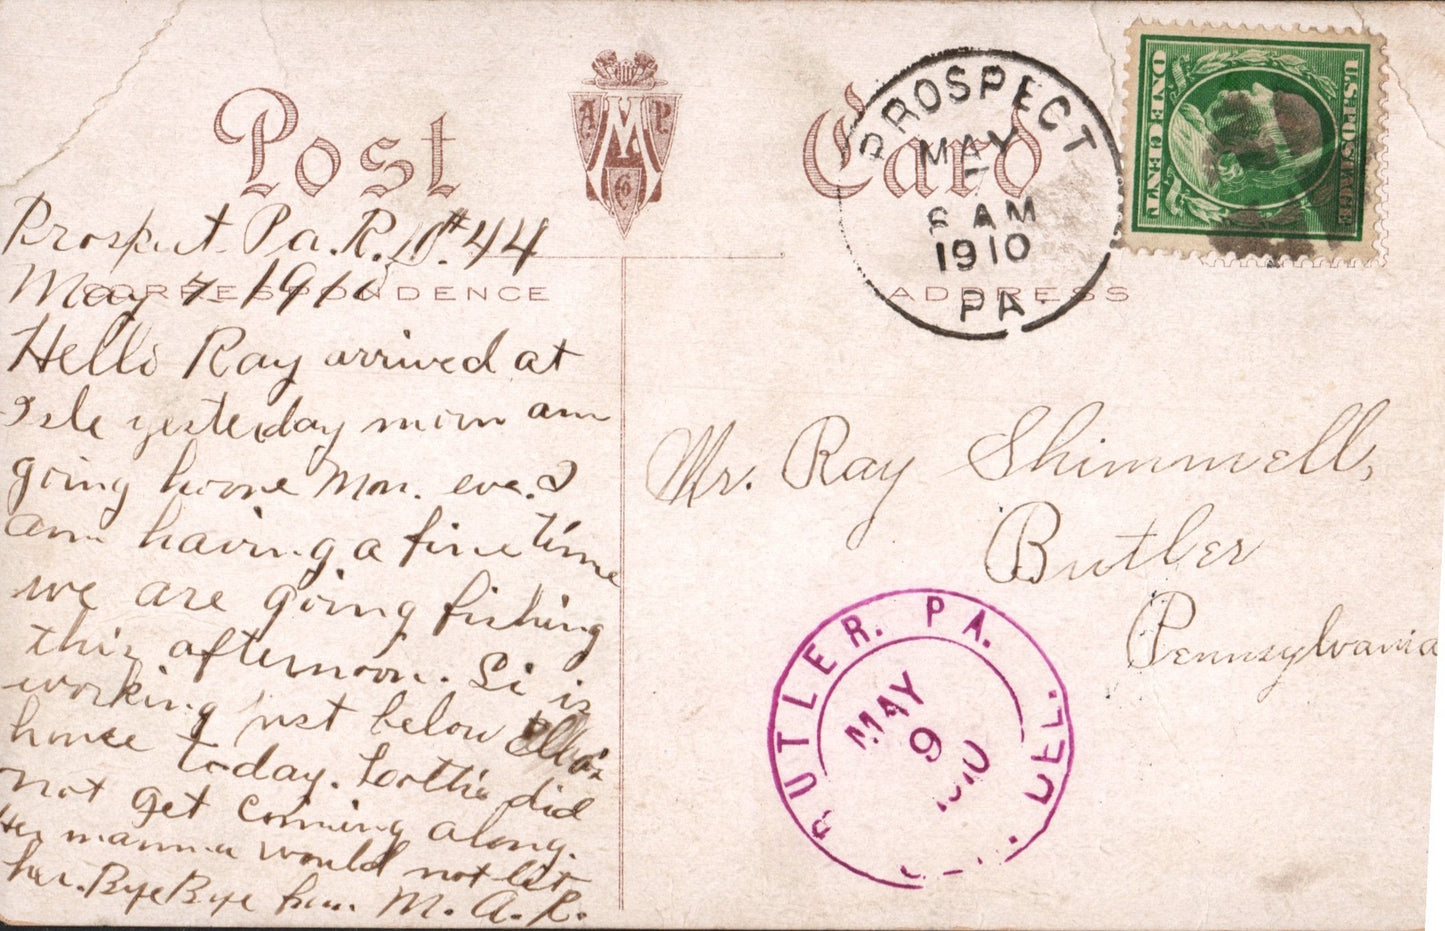 Post Card
A.P.
M.
Co
CORRESPONDENCE
ADDRESS
PROSPECT
MAY
7
6 AM
1910
PA.
U.S. POSTAGE
ONE CENT
Prospect Pa. R.D.#44
May 7 1910
Hello Ray arrived at
Isle yesterday morn am
going home Mon. eve. I
am having a fine time
we are going fishing
this afternoon. Si is
working just below
house today. Lottie did
not get coming along.
Her mamma would not let
her. Bye Bye from M. A. R.
Mr. Ray Shimmell,
Butler
Pennsylvania
BUTLER. PA.
MAY
9
1910
DEL.